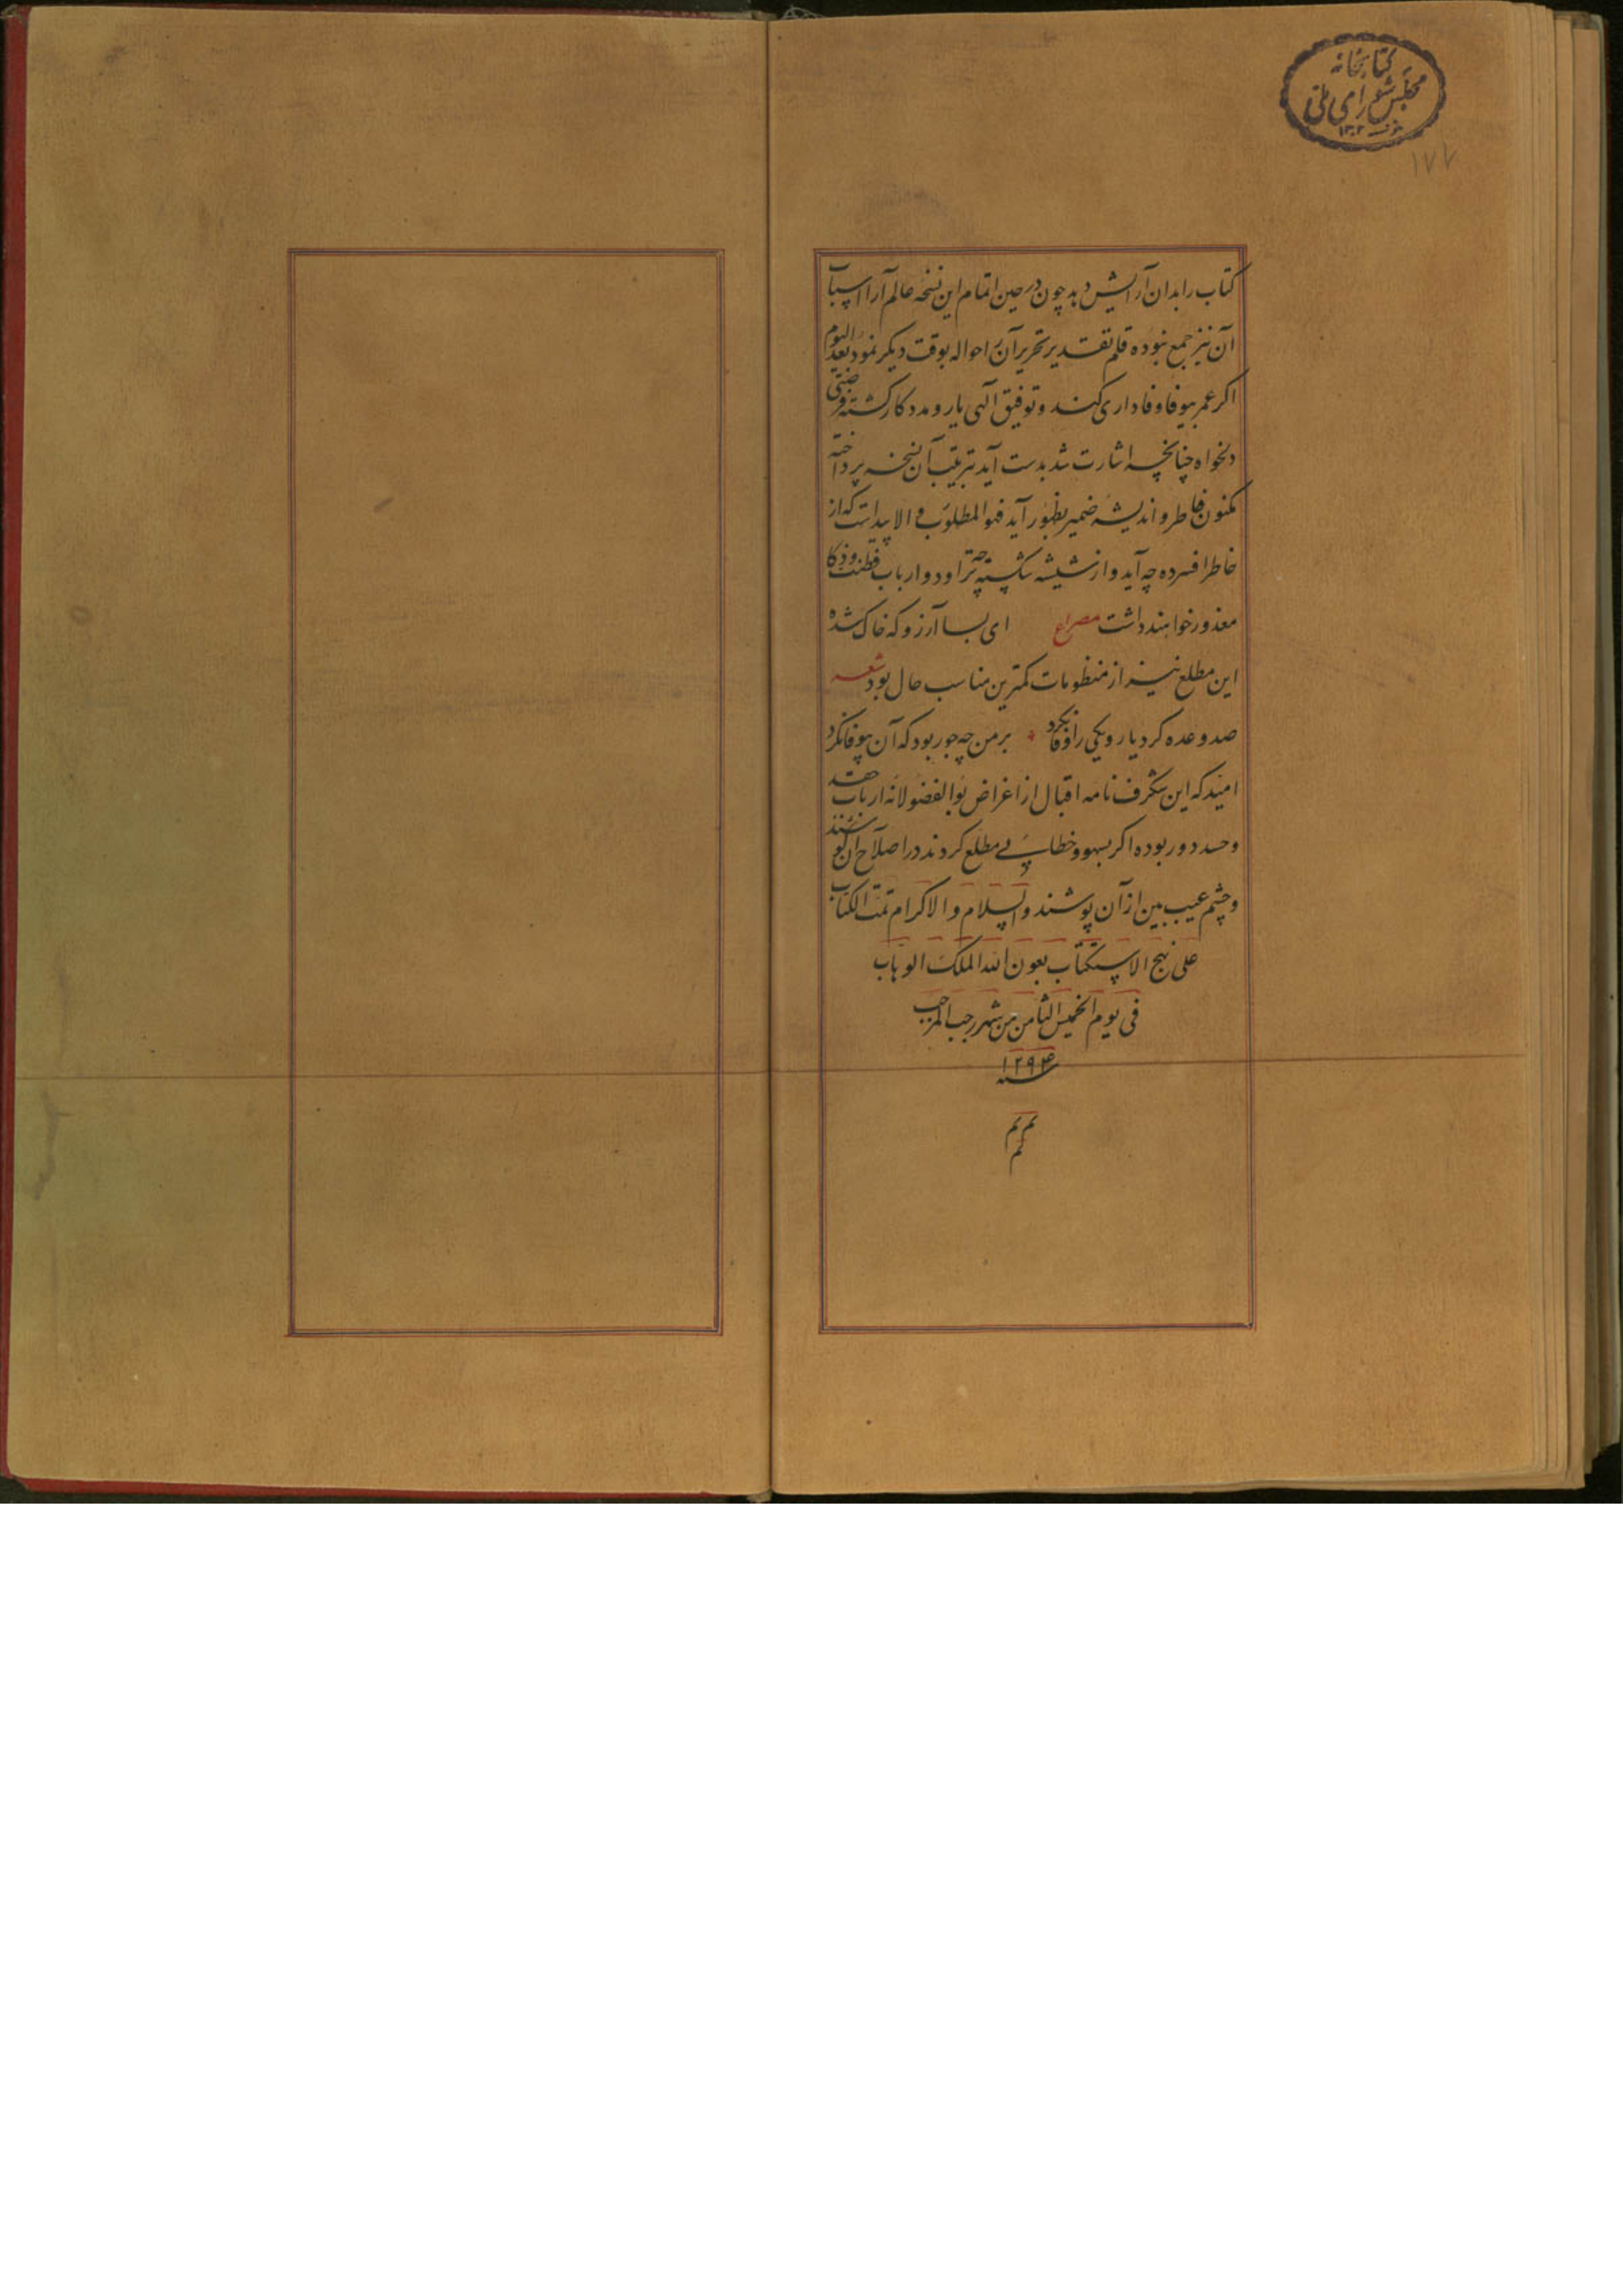 کتابخانه
مجلس شورای ملی
۱۳۰۲
۱۷۷
کتاب را بدان آرایش دهد چون در حین اتمام این نسخه عالم آرا اسباب
آن نیز جمع نبوده قلم تقدیر تحریر آن را حواله بوقت دیکر نمود بعد الیوم
اکر عمر بیوفا وفاداری کند و توفیق آلهی یار و مددکار کشته فرصتی
دلخواه چنانچه اشارت شد بدست آید بترتیب آن نسخه پرداخته
مکنون خاطر و اندیشه ضمیر بظهور آید فهو المطلوب و الا پیداست که از
خاطر افسرده چه آید و از شیشه شکسته چه تراود و ارباب فطنت و ذکا
معذور خواهند داشت مصراع ای بسا آرزو که خاک شده
این مطلع نیز از منظومات کمترین مناسب حال بود شعر
صد وعده کرد یار و یکی را وفا نکرد بر من چه جور بود که آن بیوفا نکرد
امید که این شکرف نامه اقبال از اغراض بوالفضولانه ارباب حقد
و حسد دور بوده اکر بسهو و خطایی مطلع کردند در اصلاح آن کوشند
و چشم عیب بین از آن پوشند والسلام و الاکرام تمت الکتاب
علی نهج الاستکتاب بعون الله الملک الوهاب
فی یوم الخمیس الثامن من شهر رجب المرجب
سنه ۱۲۹۴
تم تم
تم